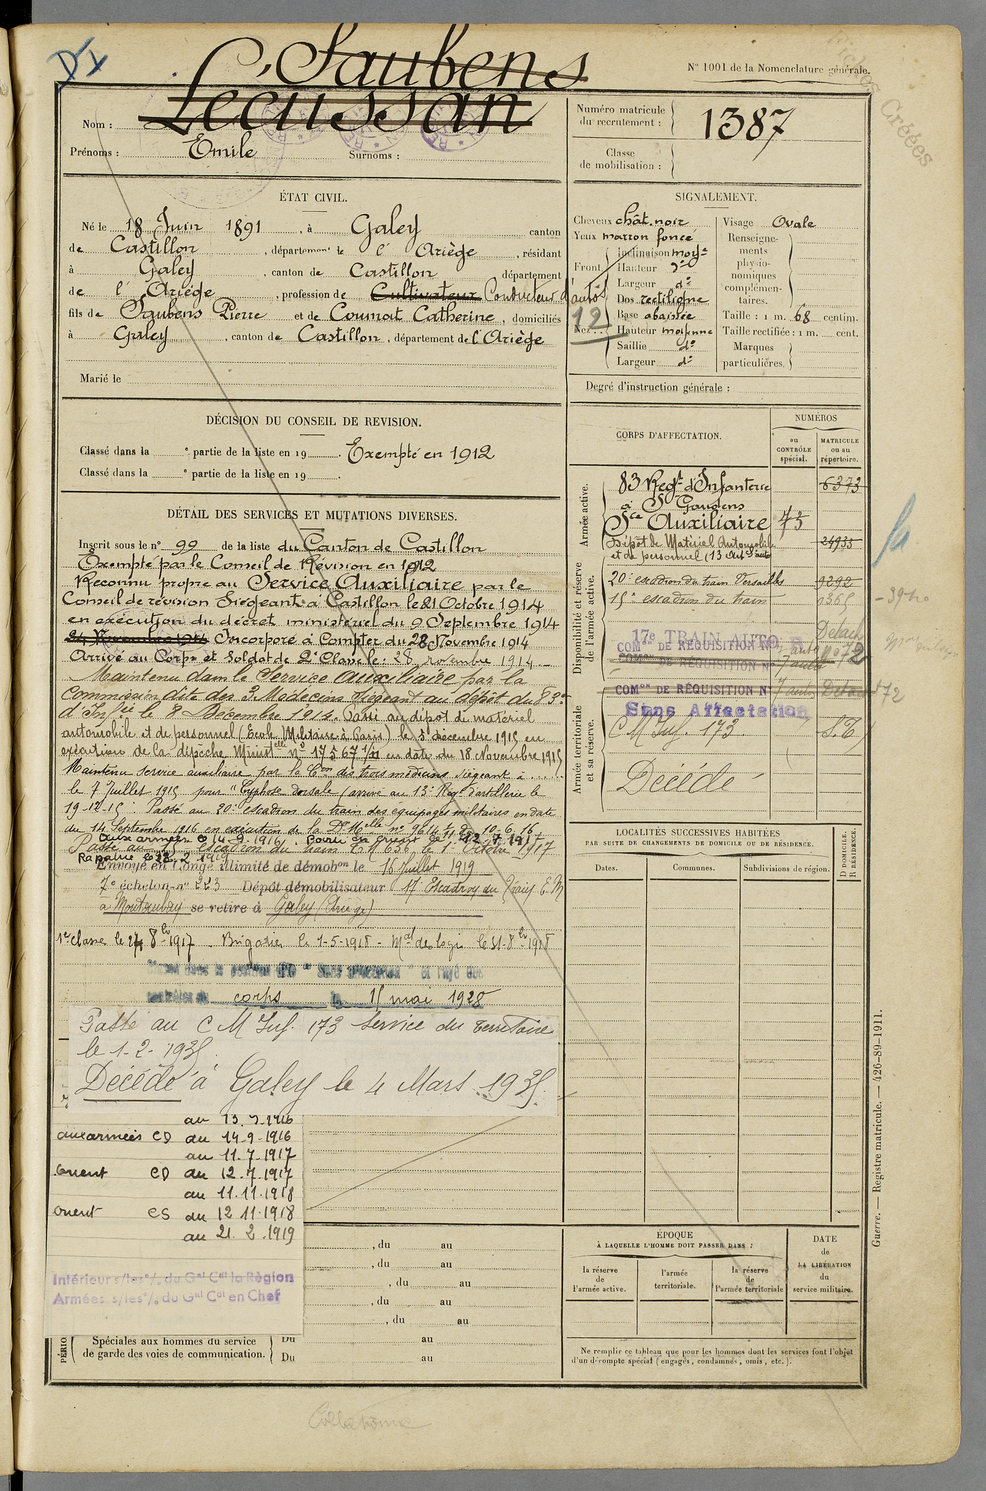 Saubens
N° 1001 de la Nomenclature générale.
Lecussan
Nom :
Prénoms : Emile Surnoms :
Numéro matricule du recrutement : 1387
Classe de mobilisation :
ÉTAT CIVIL.
Né le 18 Juin 1891, à Galey canton
de Castillon, département de l'Ariège, résidant
à Galey, canton de Castillon département
de l'Ariège, profession de Cultivateur Conducteur d'autos
fils de Saubens Pierre et de Coumat Catherine, domiciliés
à Galey, canton de Castillon, département de l'Ariège
Marié le
SIGNALEMENT.
Cheveux chât. noir
Yeux marron foncé
Front
Inclinaison moyne
Hauteur do
Largeur do
Nez
Dos rectiligne
Base abaissée
Hauteur moyenne
Saillie do
Largeur do
12
Visage Ovale
Renseignements physionomiques complémentaires.
Taille : 1 m. 68 centim.
Taille rectifiée : 1 m. cent.
Marques particulières.
Degré d'instruction générale :
DÉCISION DU CONSEIL DE REVISION.
Classé dans la e partie de la liste en 19 . Exempté en 1912
Classé dans la e partie de la liste en 19 .
DÉTAIL DES SERVICES ET MUTATIONS DIVERSES.
Inscrit sous le n° 99 de la liste du Canton de Castillon
Exempté par le Conseil de Révision en 1912
Reconnu propre au Service Auxiliaire par le
Conseil de révision Siégeant à Castillon le 21 Octobre 1914
en exécution du décret ministériel du 9 Septembre 1914
24 Novembre 1914 Incorporé à Compter du 28 Novembre 1914
Arrivé au Corps et Soldat de 2e Classe le : 28 novembre 1914.
Maintenu dans le Service Auxiliaire par la
Commission dite des 3 Médecins siégeant au dépôt du 83e
d'Infie le 8 Décembre 1914. Passé au dépôt de matériel
automobile et de personnel (Ecole Militaire à Paris) le 3 décembre 1915 en
exécution de la dépêche Ministelle n° 17567 en date du 18 Novembre 1915
Maintenu service auxiliaire par la Con des trois médecins siégeant à
le 7 Juillet 1915 pour "Cyphose dorsale (arrivé au 13e Régt d'artillerie le
19-12-15. Passé au 20e escadron du train des équipages militaires en date
du 14 Septembre 1916 en exécution de la
Aux armées le 14.9.1916. Parti en Orient le 12.7.1917
Passé au escadron du train le 1er Octobre 1917
Rapatrié le 22.2.1919
Envoyé en Congé illimité de démobon le 16 Juillet 1919
7e échelon n° 223 Dépôt démobilisateur 17 Escadron du Train E.M
à Montauban se retire à Galey (Ariège)
1e classe le 24 8bre 1917 - Brigadier le 1-5-1918 - Mal des logis le 31-8bre 1918
Classé dans la position dite "Sans affectation" et rayé des
contrôles du corps le 15 mai 1928
Passé au C M Inf. 173 Service du territoire
le 1-2-1935.
Décédé à Galey le 4 Mars 1935.
au 13.9.1916
aux armées CD du 14-9-1916
au 11.7.1917
Orient CD du 12.7.1917
au 11.11.1918
Orient CS du 12.11.1918
au 21.2.1919
Intérieur s/les o/. du Gal Cdt la Région
Armées s/les o/. du Gal Cdt en Chef
CORPS D'AFFECTATION.
NUMÉROS
au CONTRÔLE spécial.
MATRICULE ou au répertoire.
Armée active.
83 Regt d'Infanterie 6373
à St Gaudens
Sce Auxiliaire 73
Dépôt de Matériel Automobile 24935
et de personnel
Disponibilité et réserve de l'armée active.
20e escadron du train Versailles 9292
15e escadron du train 1365
17e TRAIN AUTO
COMon DE RÉQUISITION N°
COMon DE RÉQUISITION N°
Armée territoriale et sa réserve.
COMon DE RÉQUISITION N° 7 auto
Sans Affectation
C M Inf. 173 S.T.
Décédé
LOCALITÉS SUCCESSIVES HABITÉES
PAR SUITE DE CHANGEMENTS DE DOMICILE OU DE RÉSIDENCE.
D DOMICILE. R RÉSIDENCE.
Dates. Communes. Subdivisions de région.
ÉPOQUE
À LAQUELLE L'HOMME DOIT PASSER DANS :
la réserve de l'armée active.
l'armée territoriale.
la réserve de l'armée territoriale
DATE de LA LIBÉRATION du service militaire.
Ne remplir ce tableau que pour les hommes dont les services font l'objet
d'un décompte spécial (engagés, condamnés, omis, etc.).
, du au
, du au
, du au
, du au
, du au
PÉRIO
Spéciales aux hommes du service de garde des voies de communication.
Du au
Du au
Guerre. — Registre matricule. — 426-89-1911.
Fiches Créées